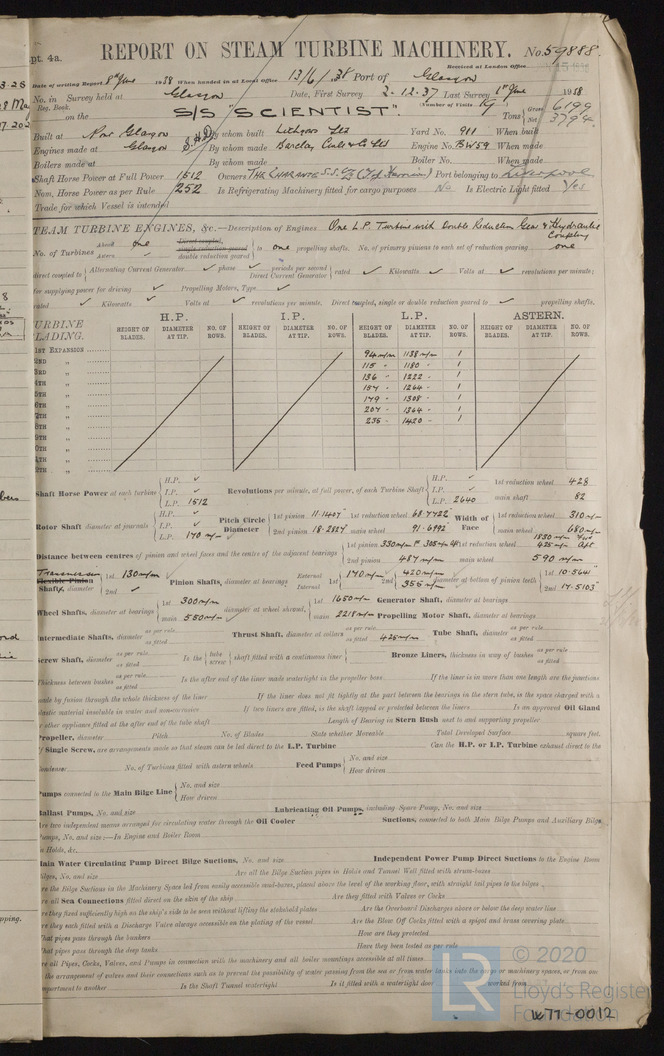 pt. 4a.
REPORT ON STEAM TURBINE MACHINERY. No. 59888
Received at London Office
Date of writing Report 8th June 1938 When handed in at Local Office 13/6/38 Port of Glasgow
No. in Survey held at Glasgow Date, First Survey 2-12-37 Last Survey 1st June 1938
Reg. Book. (Number of Visits
on the S/S "SCIENTIST". Tons Gross 6199 Net 3794
Built at Port Glasgow By whom built Lithgows Ltd Yard No. 911 When built
Engines made at Glasgow By whom made Barclay Curle & Co Ltd Engine No. BW59 When made
Boilers made at By whom made Boiler No. When made
Shaft Horse Power at Full Power 1512 Owners THE CHARENTE S.S. Co Ld (T. & J. Harrison) Port belonging to Liverpool
Nom. Horse Power as per Rule 252 Is Refrigerating Machinery fitted for cargo purposes No Is Electric Light fitted Yes
Trade for which Vessel is intended
TEAM TURBINE ENGINES, &c.—Description of Engines One L.P. Turbine with Double Reduction Gear & Hydraulic Coupling
No. of Turbines Ahead one Astern ✓ Direct coupled, single reduction geared double reduction geared to one propelling shafts. No. of primary pinions to each set of reduction gearing one
direct coupled to Alternating Current Generator ✓ phase ✓ periods per second Direct Current Generator rated ✓ Kilowatts ✓ Volts at ✓ revolutions per minute;
for supplying power for driving ✓ Propelling Motors, Type ✓
rated ✓ Kilowatts ✓ Volts at ✓ revolutions per minute. Direct coupled, single or double reduction geared to ✓ propelling shafts.
TURBINE BLADING. H.P. I.P. L.P. ASTERN.
HEIGHT OF BLADES. DIAMETER AT TIP. NO. OF ROWS. HEIGHT OF BLADES. DIAMETER AT TIP. NO. OF ROWS. HEIGHT OF BLADES. DIAMETER AT TIP. NO. OF ROWS. HEIGHT OF BLADES. DIAMETER AT TIP. NO. OF ROWS.
1ST EXPANSION 94 m/m 1138 m/m 1
2ND " 115 - 1180 - 1
3RD " 136 - 1222 - 1
4TH " 157 - 1264 - 1
5TH " 179 - 1308 - 1
6TH " 207 - 1364 - 1
7TH " 235 - 1420 - 1
8TH "
9TH "
Shaft Horse Power at each turbine H.P. ✓ I.P. ✓ L.P. 1512 Revolutions per minute, at full power, of each Turbine Shaft H.P. ✓ I.P. ✓ L.P. 2640 1st reduction wheel 428 main shaft 82
Rotor Shaft diameter at journals H.P. ✓ I.P. ✓ L.P. 170 m/m Pitch Circle Diameter 1st pinion 11.1407" 1st reduction wheel 68.7722 2nd pinion 18.2827 main wheel 91.6992 Width of Face 1st reduction wheel 310 m/m main wheel 680 m/m
Distance between centres of pinion and wheel faces and the centre of the adjacent bearings 1st pinion 330 m/m F 305 m/m A 1st reduction wheel 1830 m/m For'd 425 m/m Aft 2nd pinion 487 m/m main wheel 590 m/m
Transmission Flexible Pinion Shafts, diameter 1st 130 m/m 2nd ✓ Pinion Shafts, diameter at bearings External 1st 170 m/m 2nd 420 m/m Internal 355 m/m diameter at bottom of pinion teeth 1st 10.5641" 2nd 17.5103"
Wheel Shafts, diameter at bearings 1st 300 m/m main 550 m/m diameter at wheel shroud, 1st 1650 m/m main 2218 m/m Generator Shaft, diameter at bearings
Propelling Motor Shaft, diameter at bearings
Intermediate Shafts, diameter as per rule as fitted Thrust Shaft, diameter at collars as per rule as fitted 425 m/m Tube Shaft, diameter as per rule as fitted
Screw Shaft, diameter as per rule as fitted Is the tube screw shaft fitted with a continuous liner Bronze Liners, thickness in way of bushes as per rule as fitted
Thickness between bushes as per rule as fitted Is the after end of the liner made watertight in the propeller boss If the liner is in more than one length are the junctions
made by fusion through the whole thickness of the liner If the liner does not fit tightly at the part between the bearings in the stern tube, is the space charged with a
plastic material insoluble in water and non-corrosive If two liners are fitted, is the shaft lapped or protected between the liners Is an approved Oil Gland
or other appliance fitted at the after end of the tube shaft Length of Bearing in Stern Bush next to and supporting propeller
Propeller, diameter Pitch No. of Blades State whether Moveable Total Developed Surface square feet.
If Single Screw, are arrangements made so that steam can be led direct to the L.P. Turbine Can the H.P. or I.P. Turbine exhaust direct to the
Condenser No. of Turbines fitted with astern wheels Feed Pumps No. and size How driven
Pumps connected to the Main Bilge Line No. and size How driven
Ballast Pumps, No. and size Lubricating Oil Pumps, including Spare Pump, No. and size
Are two independent means arranged for circulating water through the Oil Cooler Suctions, connected to both Main Bilge Pumps and Auxiliary Bilge
Pumps, No. and size:—In Engine and Boiler Room
In Holds, &c.
Main Water Circulating Pump Direct Bilge Suctions, No. and size Independent Power Pump Direct Suctions to the Engine Room
Bilges, No. and size Are all the Bilge Suction pipes in Holds and Tunnel Well fitted with strum-boxes
Are the Bilge Suctions in the Machinery Space led from easily accessible mud-boxes, placed above the level of the working floor, with straight tail pipes to the bilges
Are all Sea Connections fitted direct on the skin of the ship Are they fitted with Valves or Cocks
Are they fixed sufficiently high on the ship's side to be seen without lifting the stokehold plates Are the Overboard Discharges above or below the deep water line
Are they each fitted with a Discharge Valve always accessible on the plating of the vessel Are the Blow Off Cocks fitted with a spigot and brass covering plate
What pipes pass through the bunkers How are they protected
What pipes pass through the deep tanks Have they been tested as per rule
Are all Pipes, Cocks, Valves, and Pumps in connection with the machinery and all boiler mountings accessible at all times
Is the arrangement of valves and their connections such as to prevent the possibility of water passing from the sea or from water tanks into the cargo or machinery spaces, or from one
compartment to another Is the Shaft Tunnel watertight Is it fitted with a watertight door worked from
© 2020
LR Lloyd's Register Foundation
W77-0012